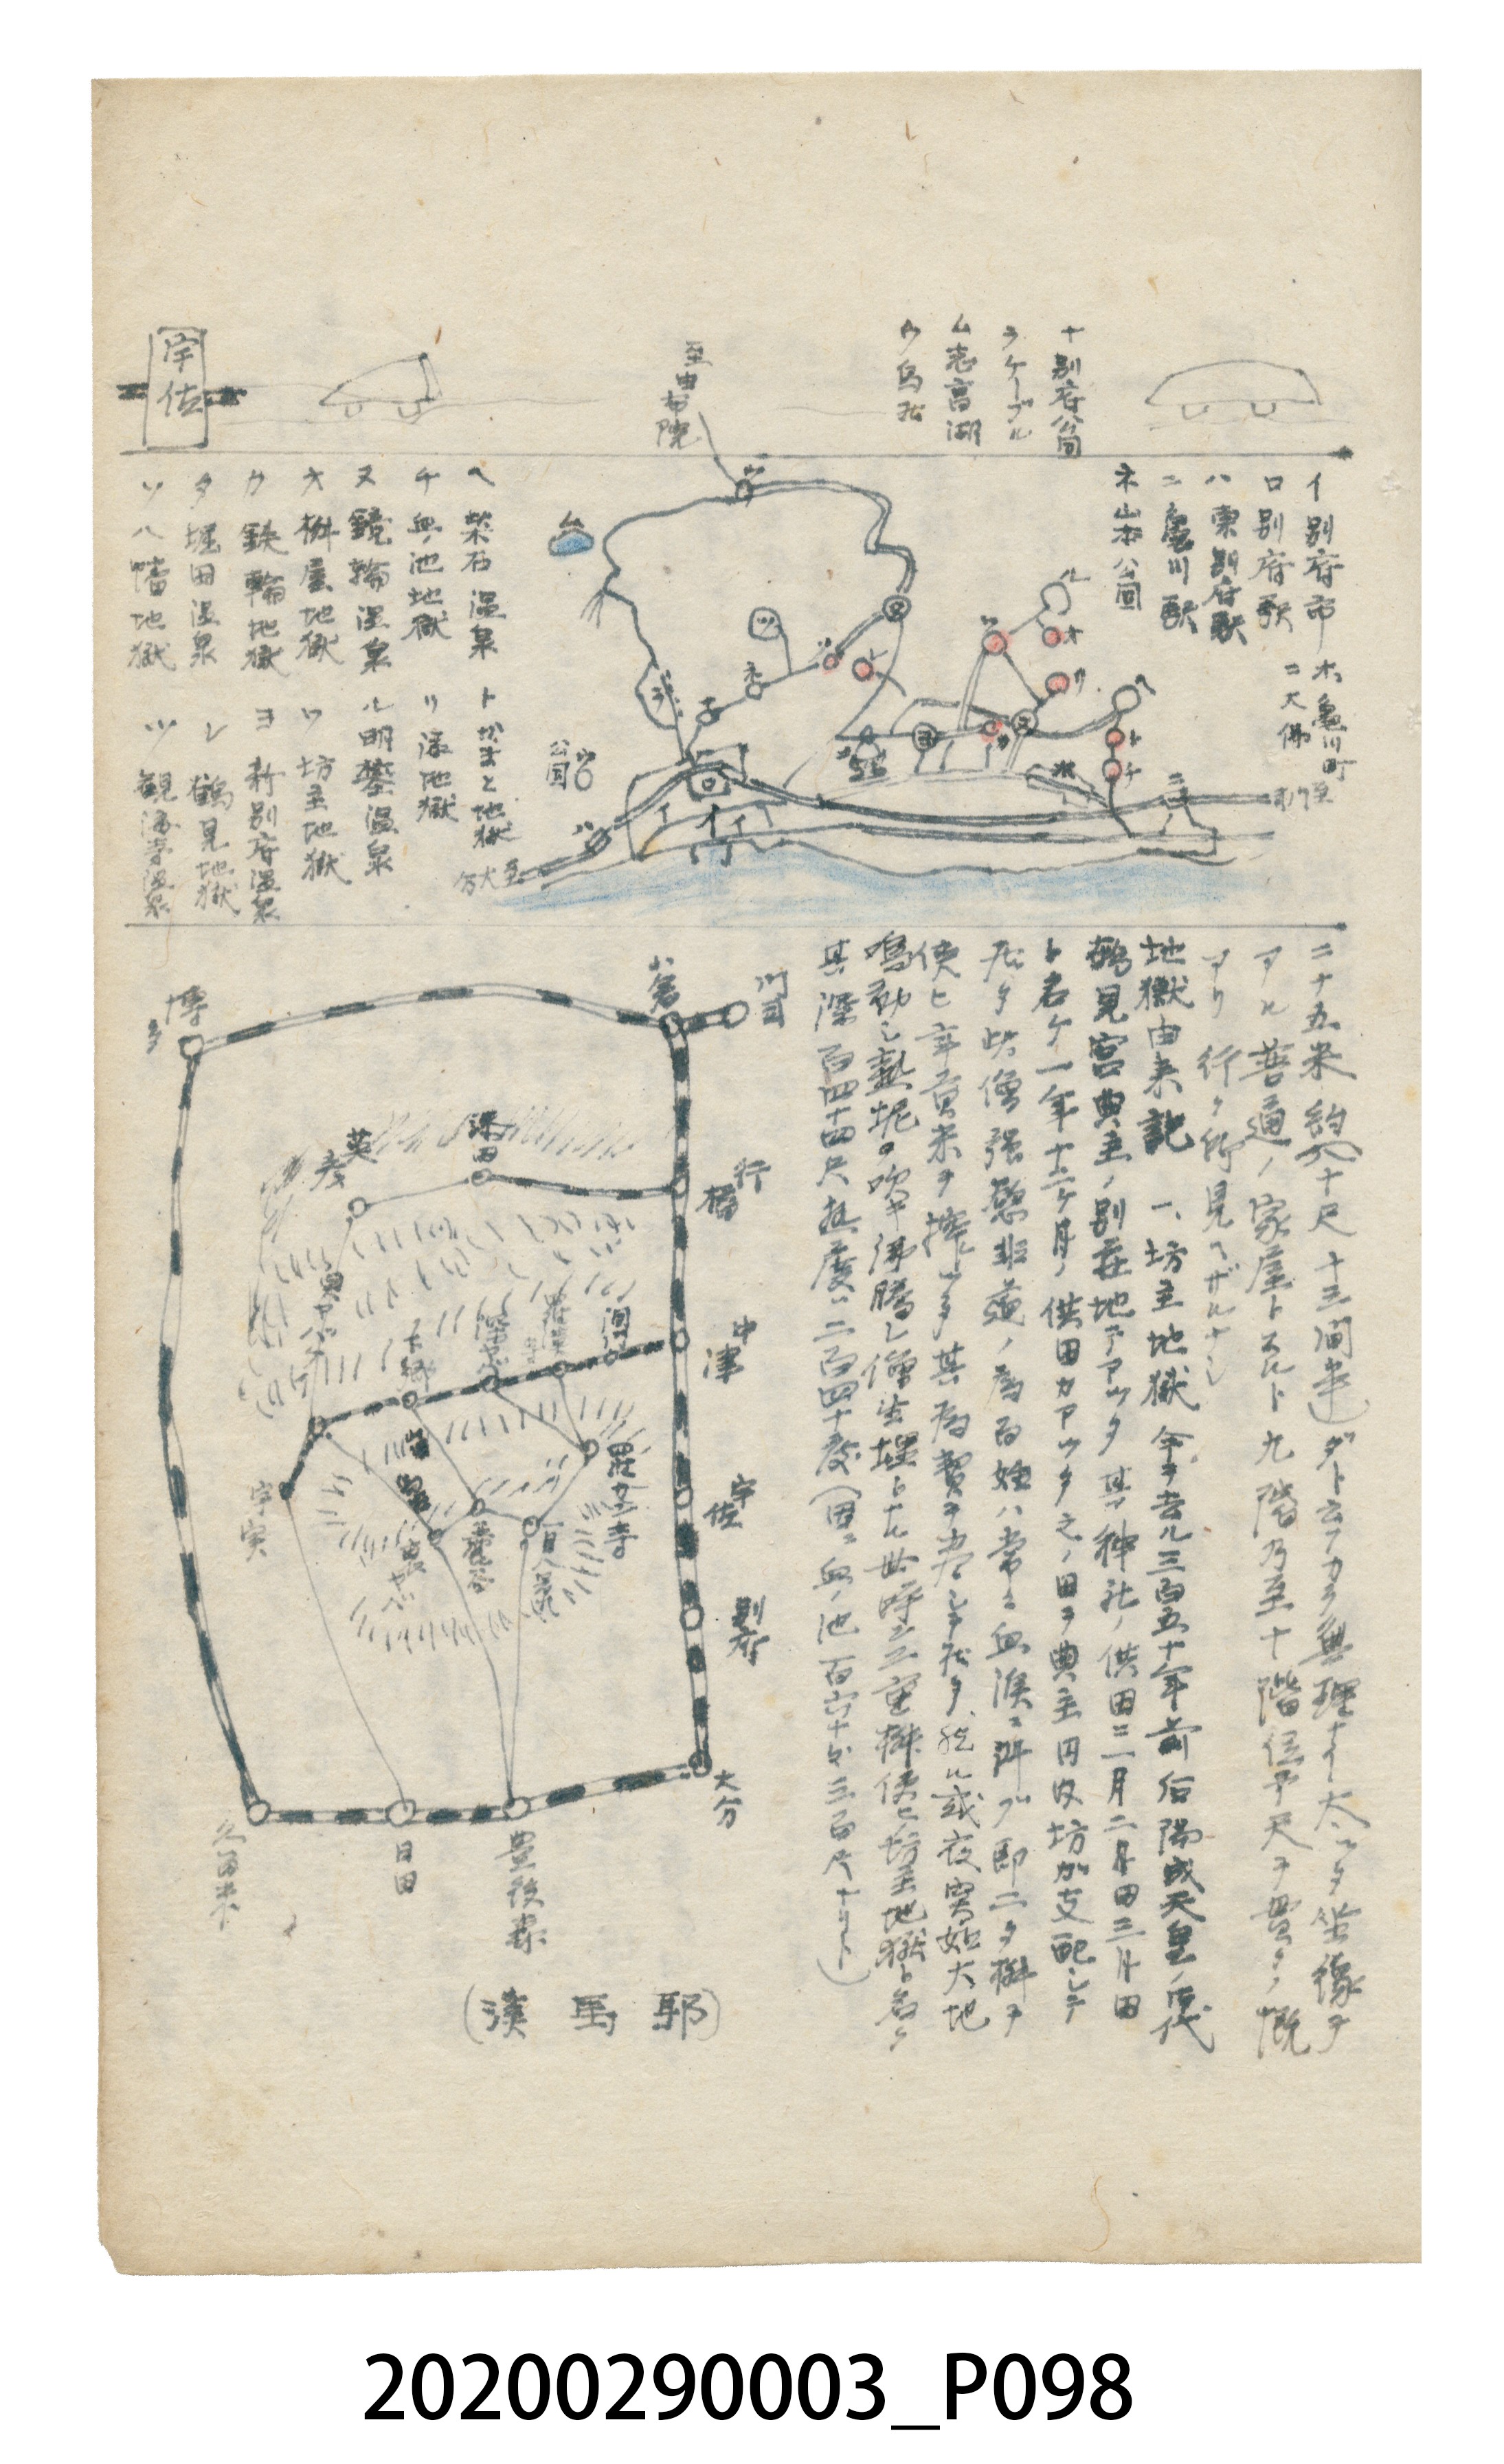 宇佐
至由布院
ナ 別府公園
ラ ケーブル
ム 志高湖
ウ 鳥居
イ 別府市
ロ 別府駅
ハ 東別府駅
ニ 亀川駅
ホ 亀川町
ニ 大佛
ネ 山本公園
ヘ 柴石温泉
ト かまど地獄
チ 血ノ池地獄
リ 海地獄
ヌ 鏡輪温泉
ル 明礬温泉
オ 桝屋地獄
ワ 坊主地獄
カ 鉄輪地獄
ヨ 新別府温泉
タ 堀田温泉
レ 鶴見地獄
ソ 八幡地獄
ツ 観海寺温泉
公園
至大分
二十五米(約八十尺 十三間半)ダト云フカラ無理ナイ太ツタ坐像ヲ
アル 普通ノ家屋トスルト九階乃至十階位
アリ 行ク所見ヘザルナシ
地獄由来記 一、坊主地獄 今ヲ去ル三百五十年前后陽成天皇ノ御代
鶴見宮典主ノ別荘地デアツタ其ノ神社ノ供田ニ一月二月田三月田
ト名ケ一年十二ケ月ノ供田カアツタ之ノ田ヲ典主円内坊加支配シテ
居タ此僧強慾非道ノ為百姓ハ常ニ血涙ニ咽ブ即ニタ桝ヲ
使ヒ年貢米ヲ搾ツタ其為贅ヲ尽シテ居タ、然ル或夜突如大地
鳴動シ熱泥ヲ吹キ沸騰シ僧生埋トナル世呼ンデ二重桝使ヒ坊主地獄ト名ク
其深百四十四尺熱度ハ二百四十度(因ニ血ノ池百六十度三百尺ナリト)
門司
小倉
博多
行橋
添田
英彦
中津
洞門
羅漢寺
深ヤバ
下郷
奥ヤバケイ
宇佐
羅漢寺
宇実
裏ヤバ
麗谷
一目八景
別府
大分
豊後森
日田
久留米
(耶馬渓)
20200290003_P098